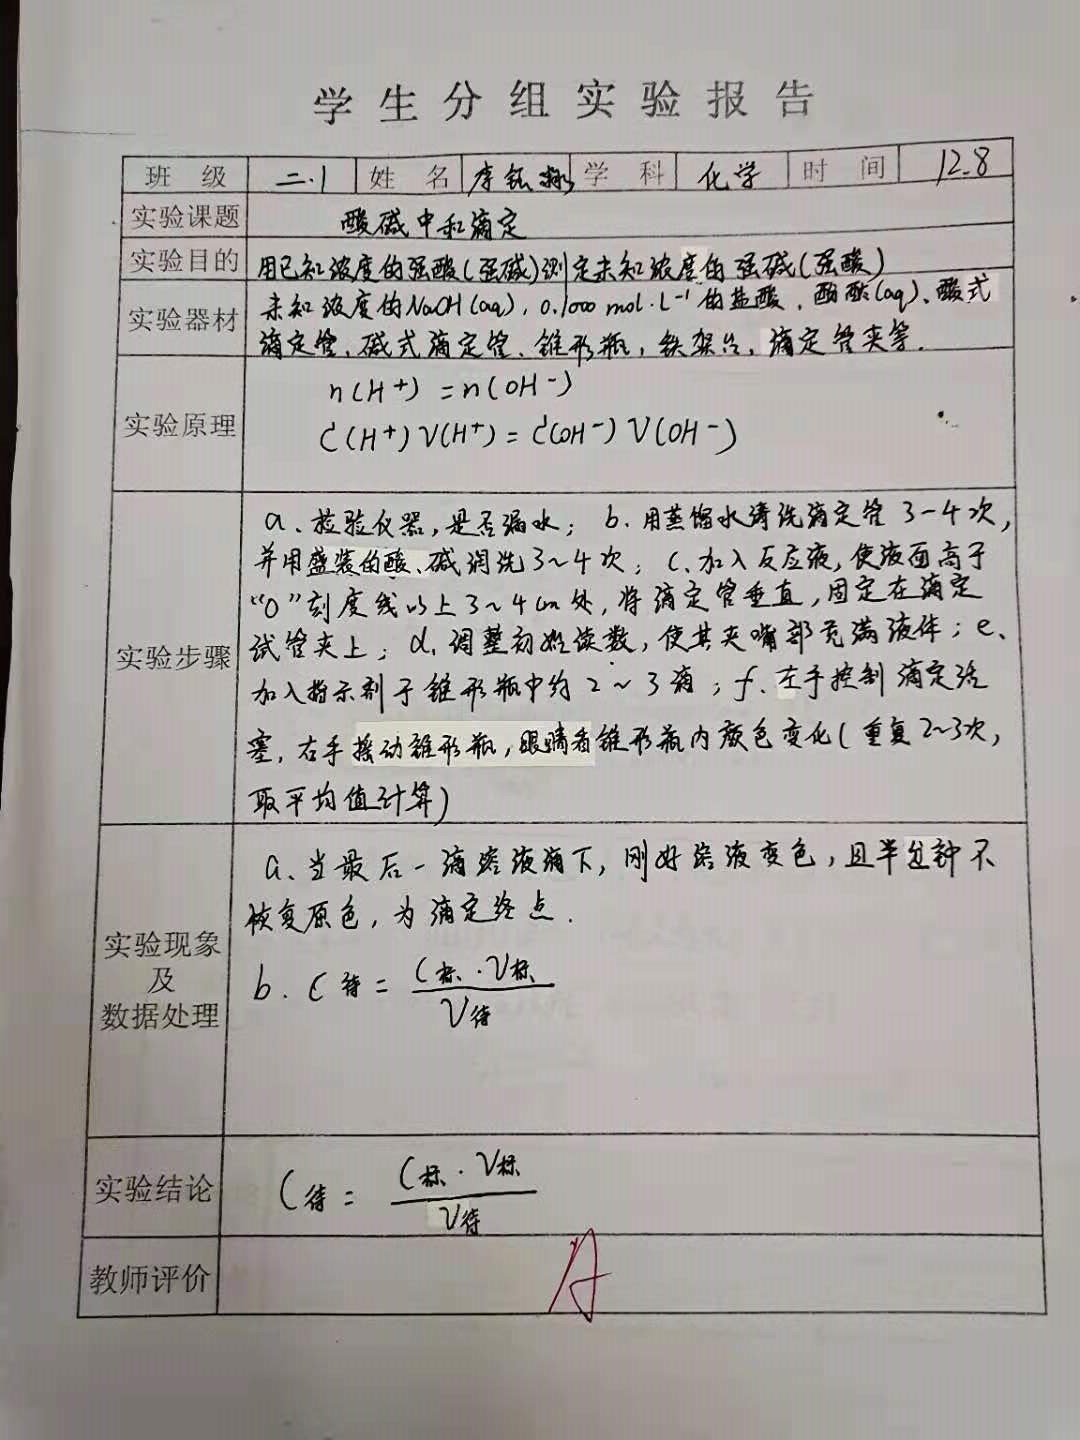 学生分组实验报告
班 级 二.1 姓 名 学 科 化学 时 间 12.8
实验课题 酸碱中和滴定
实验目的 用已知浓度的强酸(强碱)测定未知浓度的强碱(强酸)
实验器材 未知浓度的NaOH(aq), 0.1000 mol·L⁻¹ 的盐酸、酚酞(aq)、酸式
滴定管、碱式滴定管、锥形瓶, 铁架台, 滴定管夹等.
实验原理 n(H+) = n(OH-)
C(H+) V(H+) = C(OH-) V(OH-)
实验步骤
a、检验仪器, 是否漏水; b. 用蒸馏水清洗滴定管 3-4次,
并用盛装的酸、碱润洗3~4次; c、加入反应液, 使液面高于
"0"刻度线以上3~4cm处, 将滴定管垂直, 固定在滴定
试管夹上; d, 调整初始读数, 使其夹嘴部充满液体; e、
加入指示剂于锥形瓶中约2~3滴; f、左手控制滴定活
塞, 右手摇动锥形瓶, 眼睛看锥形瓶内颜色变化(重复2~3次,
取平均值计算)
实验现象
及
数据处理
a、当最后一滴溶液滴下, 刚好溶液变色, 且半分钟不
恢复原色, 为滴定终点.
b. C待 = C标·V标 / V待
实验结论 C待 = C标·V标 / V待
教师评价 A